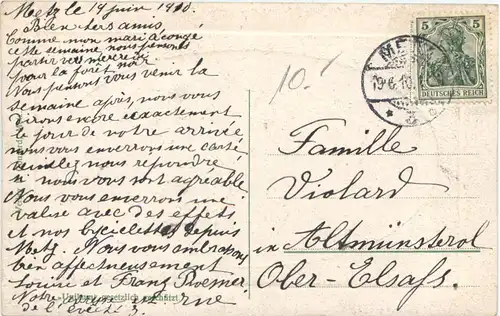 Metz le 19 juin 1910.
Bien chers amis,
Comme mon mari a congé
cette semaine nous pensons
partir vers mercredi
pour la forêt
Nous pensons vous venir la
semaine après, nous vous
dirons encore exactement
le jour de notre arrivée
nous vous enverrons une carte
veuillez nous répondre
si nous vous sont agréable
Nous vous enverrons une
valise avec des effets
et nos bicyclettes depuis
Metz. Nous vous embrassons
bien affectueusement
Louise et Franz Roemer
Notre adresse est rue
de l'évêché 3.
gesetzlich geschützt
10.-
5 5
DEUTSCHES REICH
METZ
19.6.10.
Familie
Violard
in Altmünsterol
Ober-Elsaß.